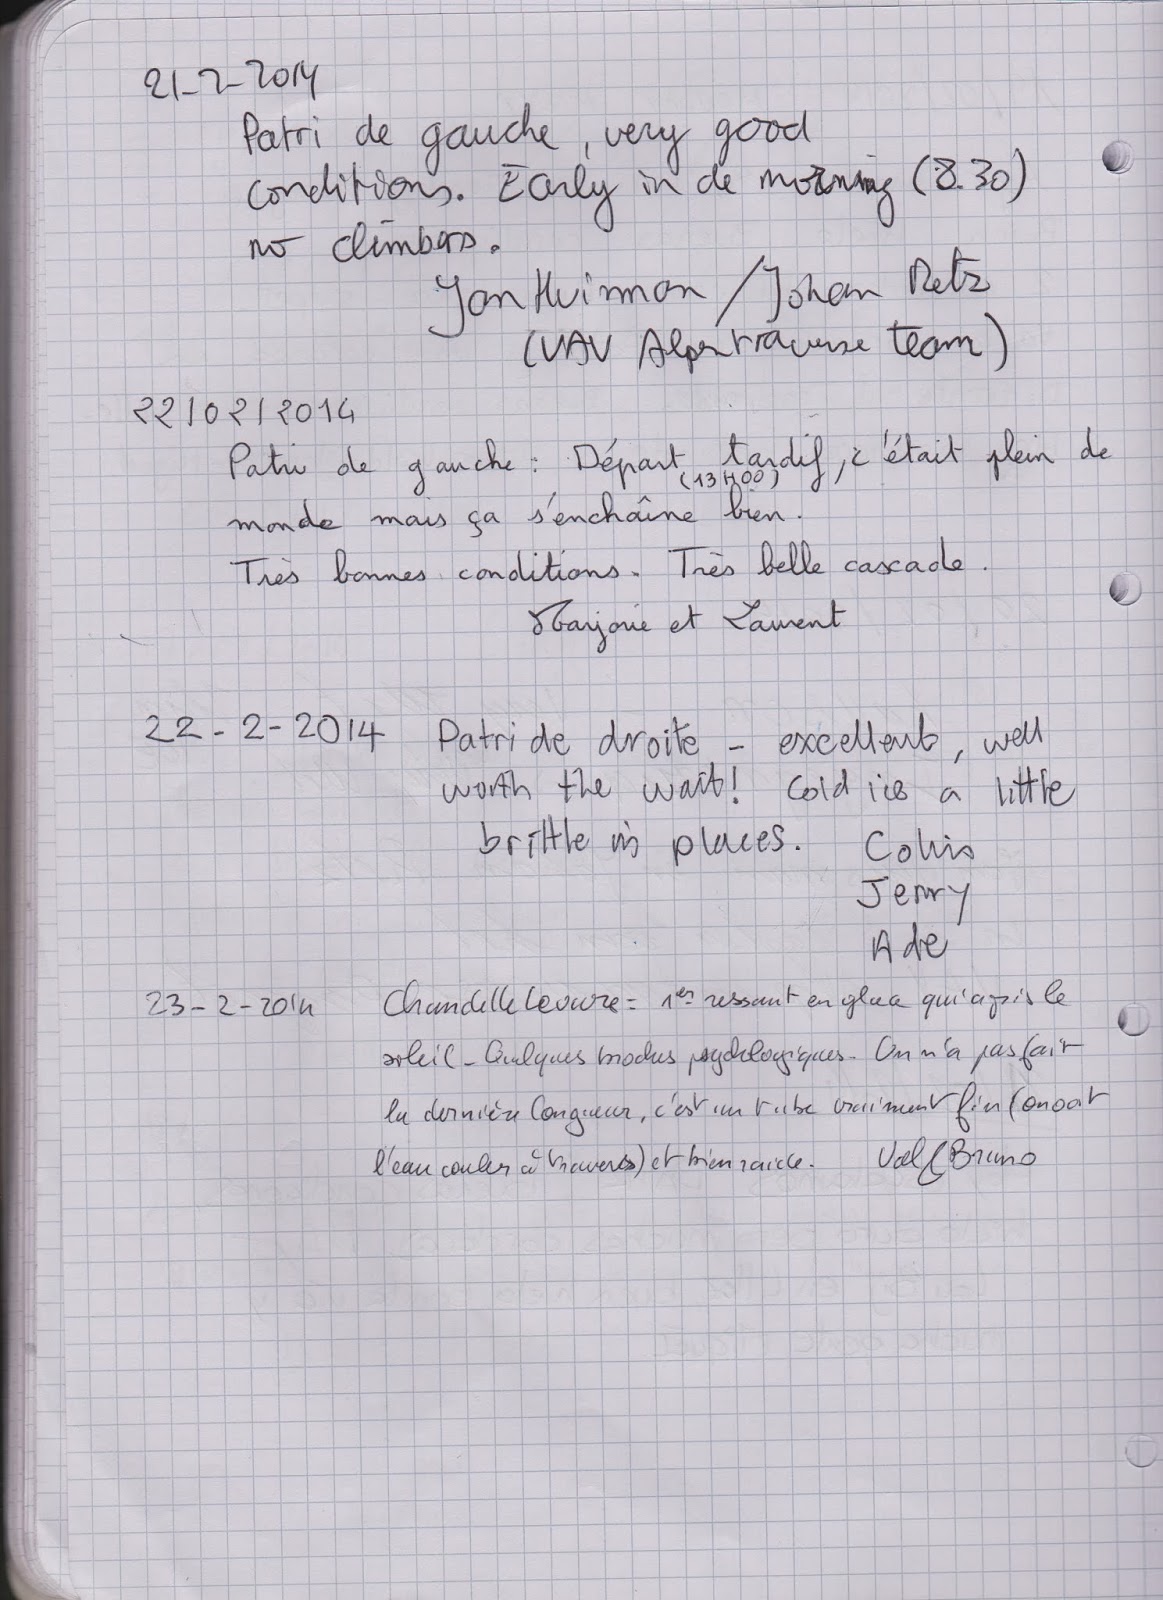 21-2-2014
Patri de gauche, very good
conditions. Early in de morning (8.30)
no climbers.
Jan / Johan Retz
(VAV Alpentraverse team)
22/02/2014
Patri de gauche : Départ tardif, c'était plein de
(13H00)
monde mais ça s'enchaîne bien.
Très bonnes conditions. Très belle cascade.
Marjorie et Laurent
22-2-2014 Patri de droite - excellent, well
worth the wait! Cold ice a little
brittle in places. Colin
Jerry
Ade
23-2-2014 Chandelle Levure = 1er ressaut en glace qui a pris le
soleil - Quelques broches psychologiques. On n'a pas fait
la dernière longueur, c'est un tube vraiment fin (on voit
l'eau couler à travers) et bien raide. Val & Bruno